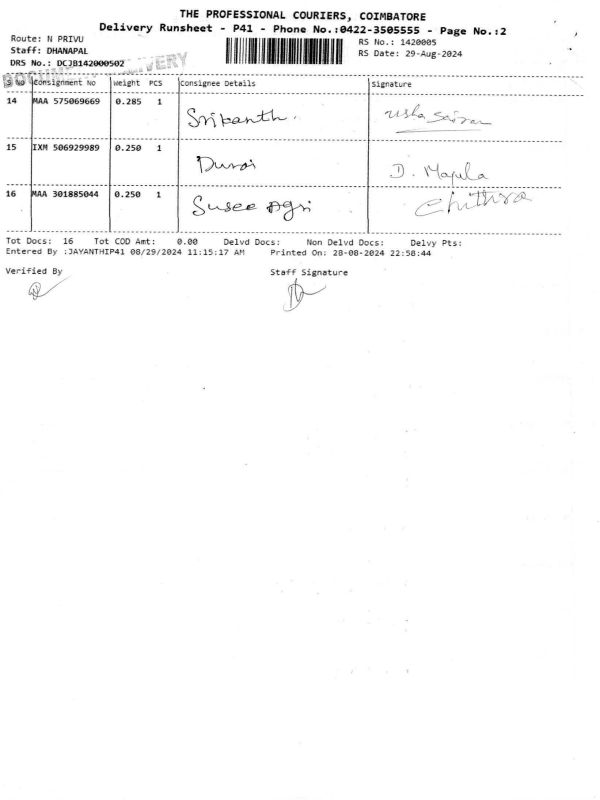 THE PROFESSIONAL COURIERS, COIMBATORE
Delivery Runsheet - P41 - Phone No.:0422-3505555 - Page No.:2
Route: N PRIVU
RS No.: 1420005
Staff: DHANAPAL
RS Date: 29-Aug-2024
DRS No.: DCJB142000502
DOCUMENT DELIVERY
S No Consignment No Weight PCS Consignee Details Signature
14 MAA 575069669 0.285 1 Srikanth. Usha
15 IXM 506929989 0.250 1 Durai D. Majula
16 MAA 301885044 0.250 1 Susee Agri Chithra
Tot Docs: 16 Tot COD Amt: 0.00 Delvd Docs: Non Delvd Docs: Delvy Pts:
Entered By :JAYANTHIP41 08/29/2024 11:15:17 AM Printed On: 28-08-2024 22:58:44
Verified By Staff Signature